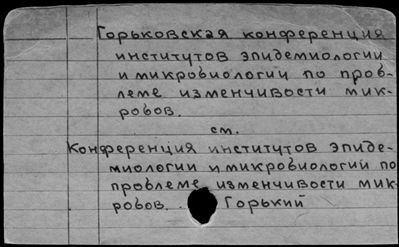 Горьковская конференция
институтов эпидемиологии
и микробиологии по проб-
леме изменчивости мик-
робов.
см.
Конференция институтов эпиде-
миологии и микробиологий по
проблеме изменчивости мик-
робов. . Горький